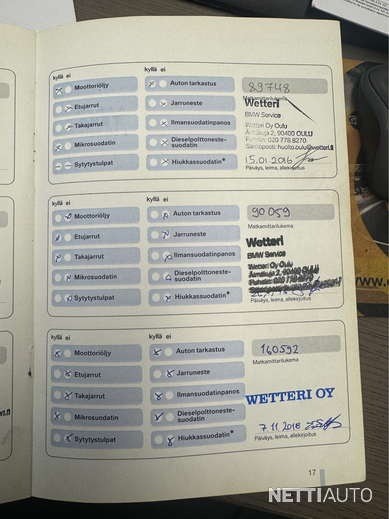 kyllä ei kyllä ei
Moottoriöljy Auton tarkastus 89748
Matkamittarilukema
Etujarrut Jarruneste Wetteri
BMW Service
Takajarrut Ilmansuodatinpanos Wetteri Oy Oulu
90400 OULU
Mikrosuodatin Dieselpolttoneste-
suodatin
Puhelin 020 778 8270
Sytytystulpat Hiukkassuodatin*
15.01.2016
Päiväys, leima, allekirjoitus
kyllä ei kyllä ei
Moottoriöljy Auton tarkastus 90059
Matkamittarilukema
Etujarrut Jarruneste Wetteri
BMW Service
Takajarrut Ilmansuodatinpanos Wetteri Oy Oulu
Mikrosuodatin Dieselpolttoneste-
suodatin
Sytytystulpat Hiukkassuodatin*
Päiväys, leima, allekirjoitus
kyllä ei kyllä ei
Moottoriöljy Auton tarkastus 160592
Matkamittarilukema
Etujarrut Jarruneste
Takajarrut Ilmansuodatinpanos WETTERI OY
Mikrosuodatin Dieselpolttoneste-
suodatin
Sytytystulpat Hiukkassuodatin* 7 11 2018
Päiväys, leima, allekirjoitus
17
NETTIAUTO